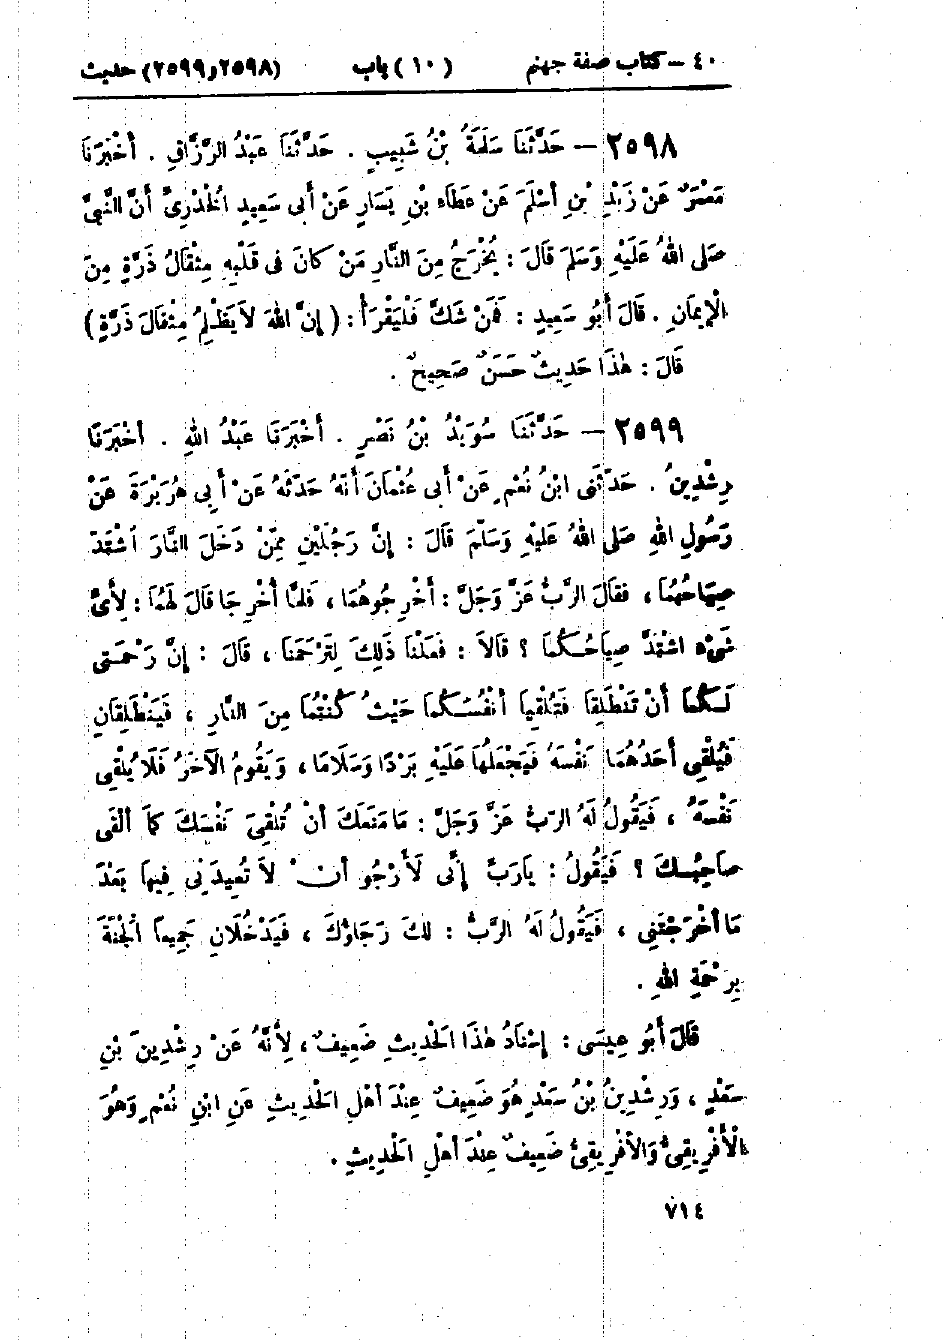 ٤٠ – كتاب صفة جهنم (١٠) باب (٢٥٩٨ و ٢٥٩٩) حديث
٢٥٩٨ – حَدَّثَنَا سَلَمَةُ بْنُ شَبِيبٍ . حَدَّثَنَا عَبْدُ الرَّزَّاقِ . أَخْبَرَنَا
مَعْمَرٌ عَنْ زَيْدِ بْنِ أَسْلَمَ عَنْ عَطَاءِ بْنِ يَسَارٍ عَنْ أَبِى سَعِيدٍ الْخُدْرِىِّ أَنَّ النَّبِىَّ
صَلى اللهُ عَلَيْهِ وَسَلمَ قَالَ : يُخْرَجُ مِنَ النَّارِ مَنْ كَانَ فى قَلْبِهِ مِثْقَالُ ذَرَّةٍ مِنَ
الْإِيمَانِ . قَالَ أَبُو سَعِيدٍ : فَمَنْ شَكَّ فَلْيَقْرَأْ : ( إِنَّ اللهَ لاَ يَظْلِمُ مِثْقَالَ ذَرَّةٍ )
قَالَ : هٰذَا حَدِيثٌ حَسَنٌ صَحِيحٌ .
٢٥٩٩ – حَدَّثَنَا سُوَيْدُ بْنُ نَصْرٍ . أَخْبَرَنَا عَبْدُ اللهِ . أَخْبَرَنَا
رِشْدِينُ . حَدَّثَنِى ابْنُ نُعْمٍ عَنْ أَبِى عُثْمَانَ أَنَّهُ حَدَّثَهُ عَنْ أَبِى هُرَيْرَةَ عَنْ
رَسُولِ اللهِ صَلى اللهُ عَلَيْهِ وَسَلّمَ قَالَ : إِنَّ رَجُلَيْنِ مِمَّنْ دَخَلَ النَّارَ اشْتَدَّ
صِيَاحُهُمَا ، فقَالَ الرَّبُّ عَزَّ وَجَلَّ : أَخْرِجُوهُمَا ، فَلمَّا أُخْرِجَا قَالَ لَهُمَا : لِأَىِّ
شَىْءٍ اشْتَدَّ صِيَاحُكُمَا ؟ قَالاَ : فَعَلْنَا ذٰلِكَ لِتَرْحَمَنَا ، قَالَ : إِنَّ رَحْمَتِى
لَكُمَا أَنْ تَنْطَلِقَا فَتُلْقِيَا أَنْفُسَكُمَا حَيْثُ كُنْتُمَا مِنَ النَّارِ ، فَيَنْطَلِقَانِ
فَيُلْقِى أَحَدُهُمَا نَفْسَهُ فَيَجْعَلُهَا عَلَيْهِ بَرْدًا وَسَلَامًا ، وَيَقُومُ الْآخَرُ فَلَا يُلْقِى
نَفْسَهُ ، فَيَقُولُ لَهُ الرَّبُّ عَزَّ وَجَلَّ : مَا مَنَعَكَ أَنْ تُلْقِىَ نَفْسَكَ كَمَا أَلْقَى
صَاحِبُكَ ؟ فَيَقُولُ : يَارَبِّ إِنِّى لَأَرْجُو أَنْ لاَ تُعِيدَنِى فِيهَا بَعْدَ
مَا أَخْرَجْتَنِى ، فَيَقُولُ لَهُ الرَّبُّ : لكَ رَجَاؤُكَ ، فَيَدْخُلَانِ جَمِيعاً الْجَنَّةَ
بِرَحْمَةِ اللهِ .
قَالَ أَبُو عِيسَى : إِسْنَادُ هٰذَا الْحَدِيثِ ضَعِيفٌ ، لِأَنَّهُ عَنْ رِشْدِينَ بْنِ
سَعْدٍ ، وَرِشْدِينُ بْنُ سَعْدٍ هُوَ ضَعِيفٌ عِنْدَ أَهْلِ الْحَدِيثِ عَنِ ابْنِ نُعْمٍ وَهُوَ
الْأَفْرِيقِىُّ وَالأفْرِيقِىُّ ضَعِيفٌ عِنْدَ أَهْلِ الْحَدِيثِ .
٧١٤